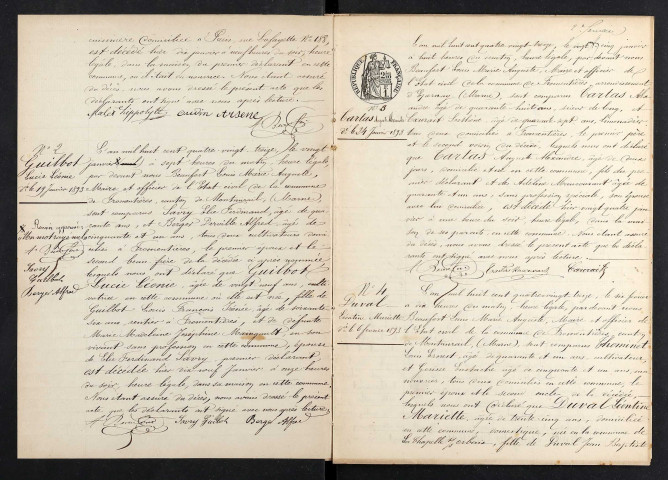 est décédé hier dix janvier à neuf heures du soir, heure
légale, dans la maison du premier déclarant en cette
commune, où il était en nourrice. Nous étant assuré
du décès, nous avons dressé le présent acte que les
déclarants ont signé avec nous après lecture.
Malot hippolyte Arsène
N° 2
Guilbot
Lucie Léonie
19 Janvier 1893
L'an mil huit cent quatre vingt treize, le vingt
janvier à sept heures du matin, heure légale,
par devant nous Beaufort Louis Marie Auguste,
Maire et officier de l'Etat civil de la commune
de Fromentières, canton de Montmirail, (Marne)
sont comparus Javry Elie Ferdinand, âgé de
ante ans, et Berger Alfred, âgé de
cinquante et un ans, tous deux cultivateurs domi
ciliés à Fromentières, le premier époux et le
second beau frère de la décédée ci après nommée,
lesquels nous ont déclaré que Guilbot
Lucie Léonie, âgée de vingt neuf ans, culti
vatrice, en cette commune où elle est née, fille de
Guilbot Louis François, âgé de soixante
ans, rentier à Fromentières, et de défunte
Marie Joséphine en son
vivant sans profession en cette commune, épouse
de Elie Ferdinand Javry, premier déclarant
est décédée hier dix neuf Janvier à onze heures
du soir, heure légale, dans sa maison en cette commune.
Nous étant assuré du décès, nous avons dressé le présent
acte que les déclarants ont signé avec nous après lecture.
Javry Guilbot Berger Alfred
Javry
Guilbot
Berger Alfred
RÉPUBLIQUE FRANÇAISE
N° 3
Carlas
24 Janvier 1893
L'an mil huit cent quatre vingt treize, le vingt cinq janvier
à huit heures du matin, heure légale, par devant nous
Beaufort Louis Marie Auguste, Maire et officier de
l'Etat civil de la commune de Fromentières, arrondissement
d'Epernay, (Marne), sont comparus Carlas Ale
xandre âgé de quarante huit ans,
âgé de quarante sept ans,
tous deux domiciliés à Fromentières, le premier père
et le second voisin du décédé, lesquels nous ont déclaré
que Carlas Auguste Alexandre, âgé de douze
jours, domicilié et né en cette commune, fils du pre
mier déclarant et de
quarante ans, sans profession
avec lui domiciliée, est décédé hier vingt quatre jan
vier à une heure du soir, heure légale, dans la mai
son de ses parents, en cette commune. Nous étant assuré
du décès, nous avons dressé le présent acte que les décla
rants ont signé avec nous, après lecture.
N° 4
Duval
Léontine Mariette
6 février 1893
L'an mil huit cent quatre vingt treize, le six février
à dix heures du matin, heure légale, par devant nous
Beaufort Louis Marie Auguste, Maire et officier de
l'Etat civil de la commune de Fromentières, canton
de Montmirail, (Marne), sont comparus Thiémot
Louis Ernest, âgé de quarante et un ans, cultivateur,
et âgé de cinquante et un ans, ma
nouvrier, tous deux domiciliés en cette commune, le
premier époux et le second oncle de la décédée,
lesquels nous ont déclaré que Duval Léontine
Mariette, âgée de trente cinq ans, domiciliée
en cette commune, domestique, née en la commune de
La Chapelle sur Orbais, fille de Duval Jean Baptiste